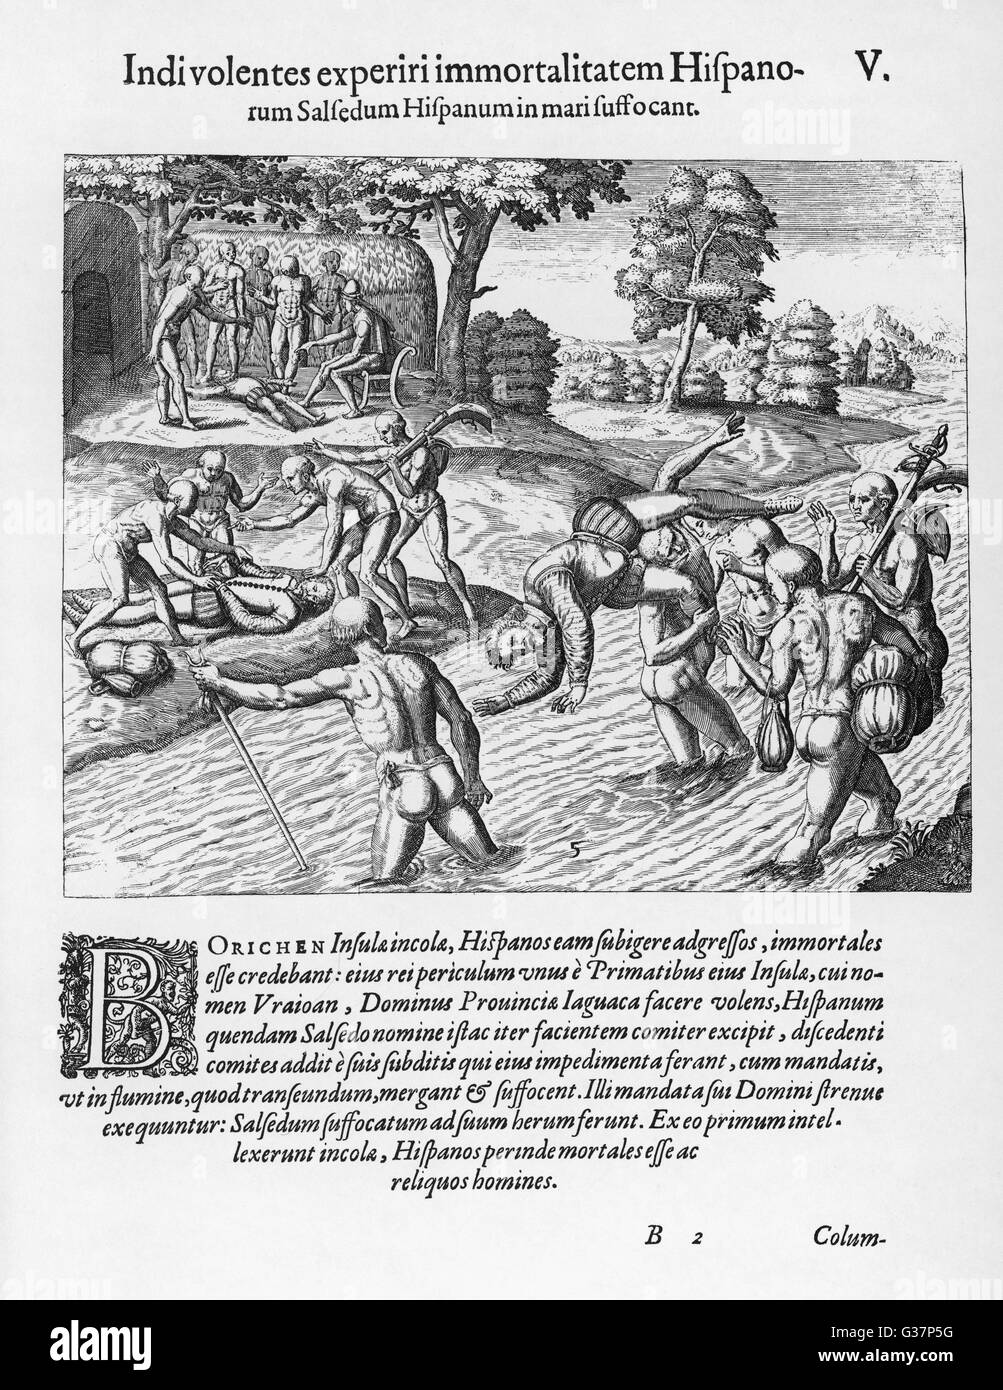 Indi volentes experiri immortalitatem Hiſpano- V.
rum Salſedum Hiſpanum in mari ſuffocant.
5
BORICHEN Inſulæ incolæ, Hiſpanos eam ſubigere adgreſſos, immortales
eſſe credebant: eius rei periculum vnus è Primatibus eius Inſulæ, cui no-
men Vraioan, Dominus Prouinciæ Iaguaca facere volens, Hiſpanum
quendam Salſedo nomine iſtac iter facientem comiter excipit, diſcedenti
comites addit è ſuis ſubditis qui eius impedimenta ferant, cum mandatis,
vt in flumine, quod tranſeundum, mergant & ſuffocent. Illi mandata ſui Domini ſtrenue
exequuntur: Salſedum ſuffocatum ad ſuum herum ferunt. Ex eo primum intel-
lexerunt incolæ, Hiſpanos perinde mortales eſſe ac
reliquos homines.
B 2 Colum-
alamy
alamy
Image ID: G37P5G
www.alamy.com